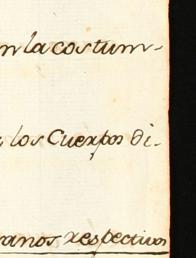 n la costum-
s los Cuerpos di-
ranos respectivos